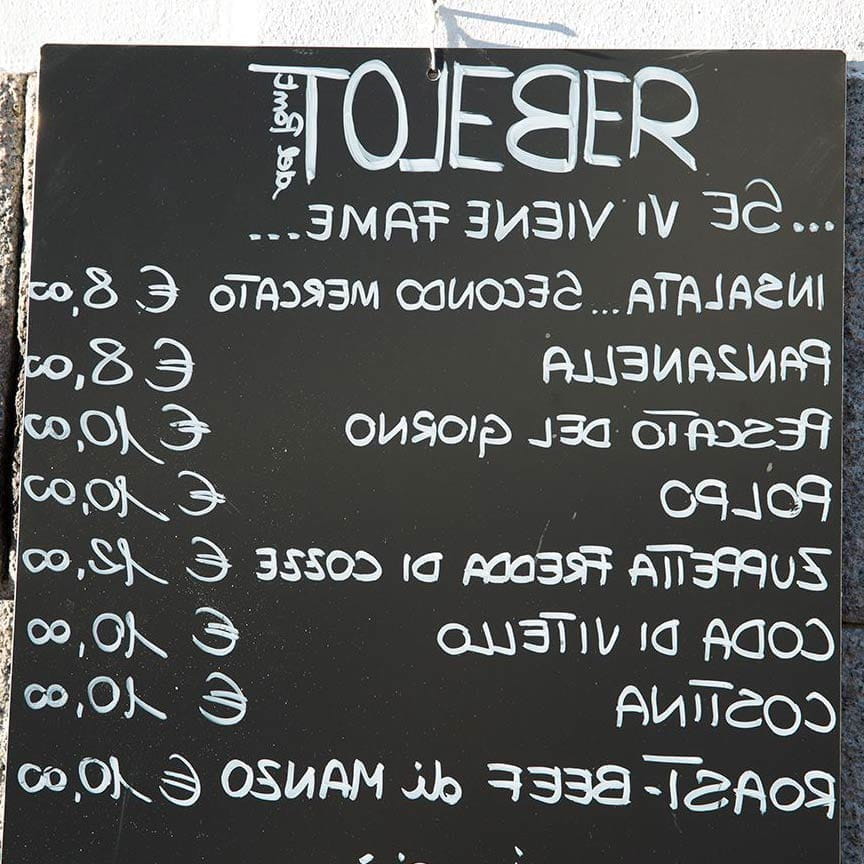 REBELOT
del Pont
...SE VI VIENE FAME...
INSALATA...SECONDO MERCATO € 8,00
PANZANELLA € 8,00
PESCATO DEL GIORNO € 10,00
POLPO € 10,00
ZUPPETTA FREDDA DI COZZE € 12,00
CODA DI VITELLO € 10,00
COSTINA € 10,00
ROAST-BEEF di MANZO € 10,00